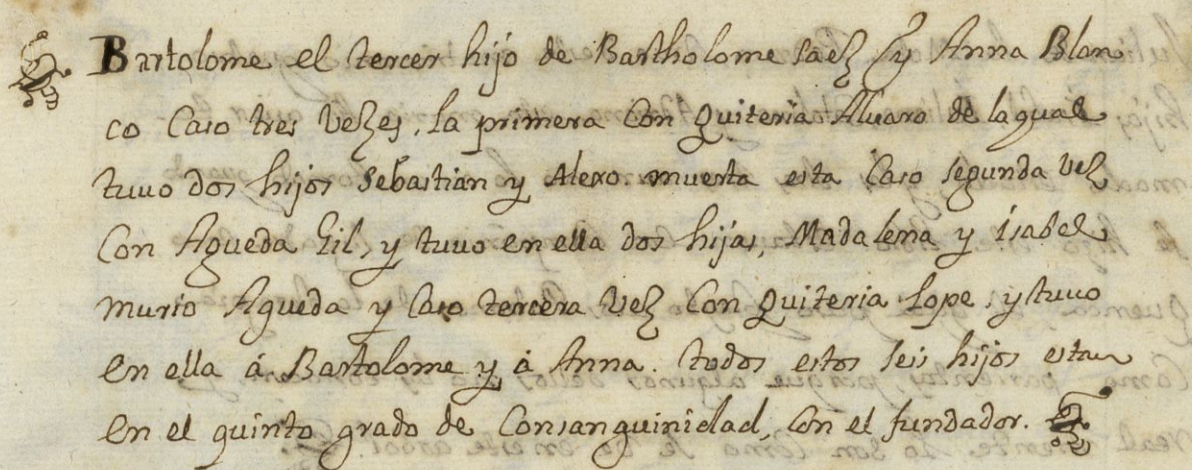 Bartolome el tercer hijo de Bartholome saez y Anna Blan
co Caso tres Vezes, la primera Con Quiteria Alvaro de la qual
tuuo dos hijos Sebastian y Alexo. muerta esta Caso segunda Vez
Con Agueda Gil, y tuuo en ella dos hijas, Madalena y Isabel
murio Agueda y Caso tercera Vez Con Quiteria Lope, y tuuo
en ella á Bartolome y á Anna. todos estos seis hijos estan
en el quinto grado de Consanguinidad, Con el fundador.